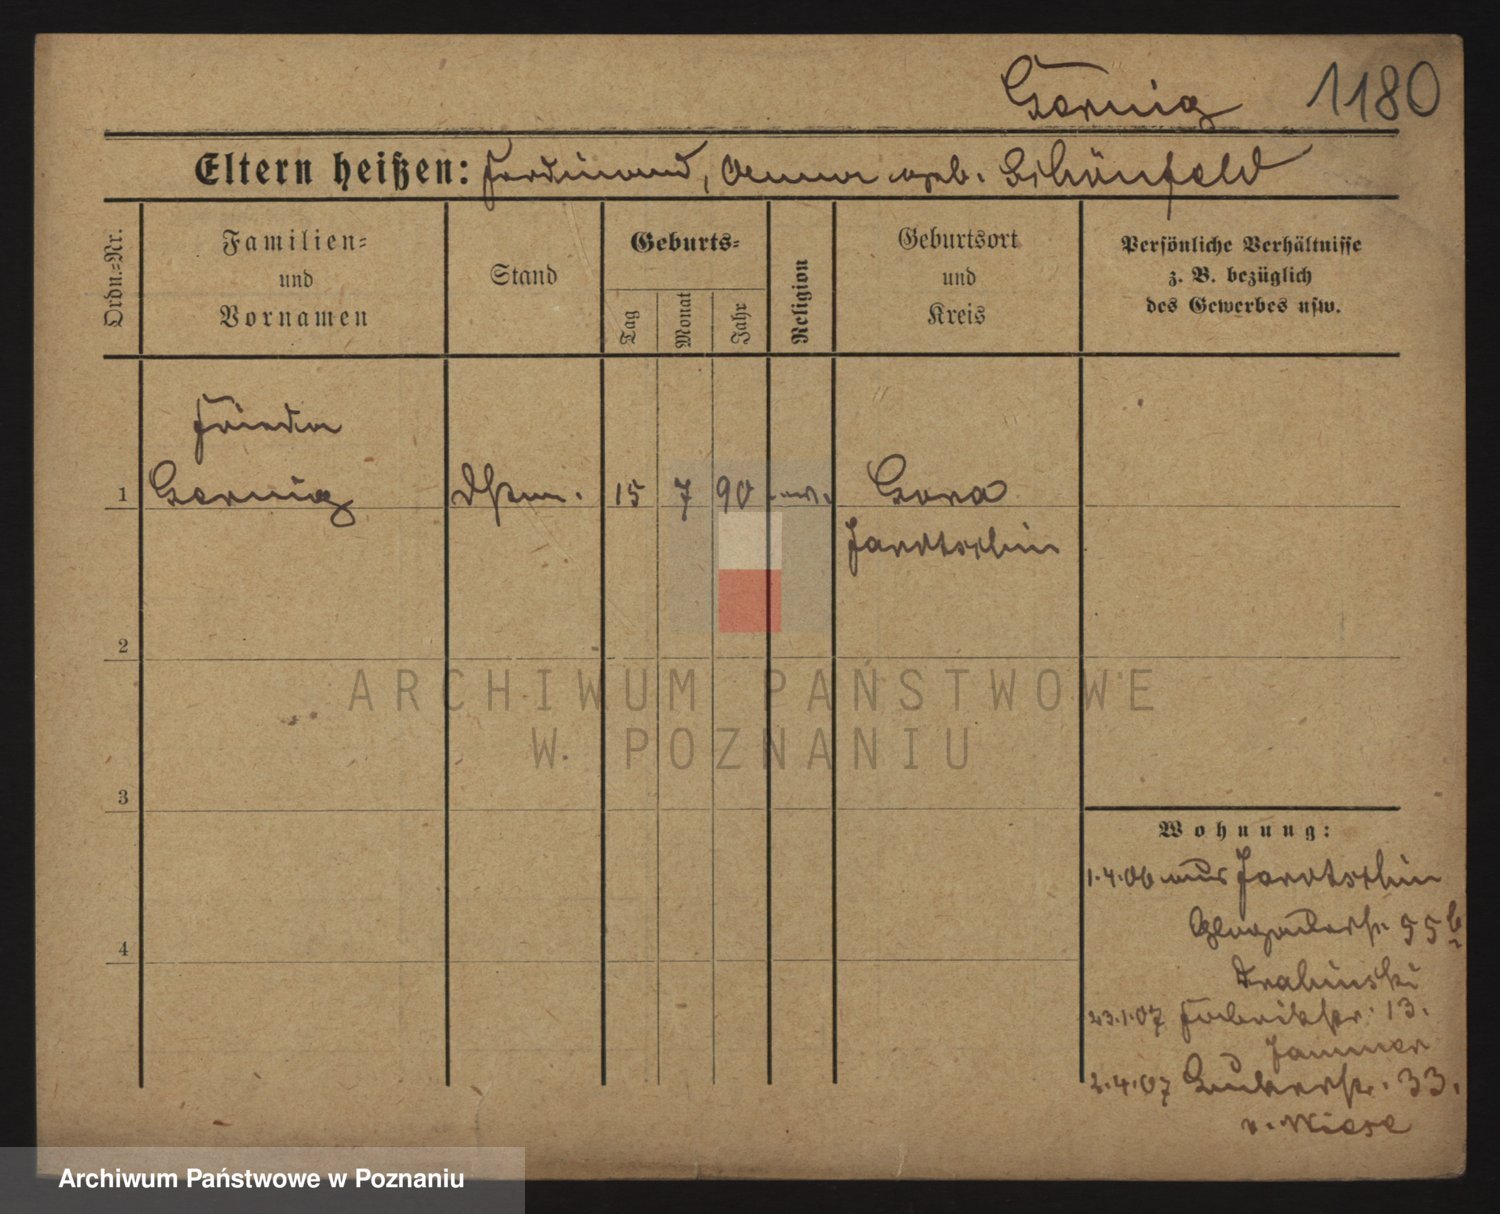 Gernig 1180
Eltern heißen: Ferdinand, Anna geb. Schönfeld
Ordn.=Nr.
Familien=
und
Vornamen
Stand
Geburts=
Tag
Monat
Jahr
Religion
Geburtsort
und
Kreis
Persönliche Verhältnisse
z. B. bezüglich
des Gewerbes usw.
Frieda
1 Gernig 15 7 90 ev. Gora
Jarotschin
2
3
4
Wohnung:
1.4.06 aus Jarotschin
Glogauerstr. 55b
Drabinski
23.1.07 Fabrikstr. 13.
2.4.07 33.
v. Wiese
ARCHIWUM PAŃSTWOWE
W POZNANIU
Archiwum Państwowe w Poznaniu